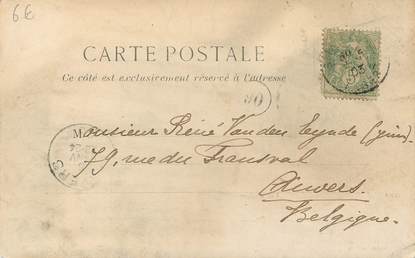 6€
CARTE POSTALE
Ce côté est exclusivement réservé à l'adresse
Monsieur René Vanden Eynde (juni).
79, rue du Transval
Anvers.
Belgique.